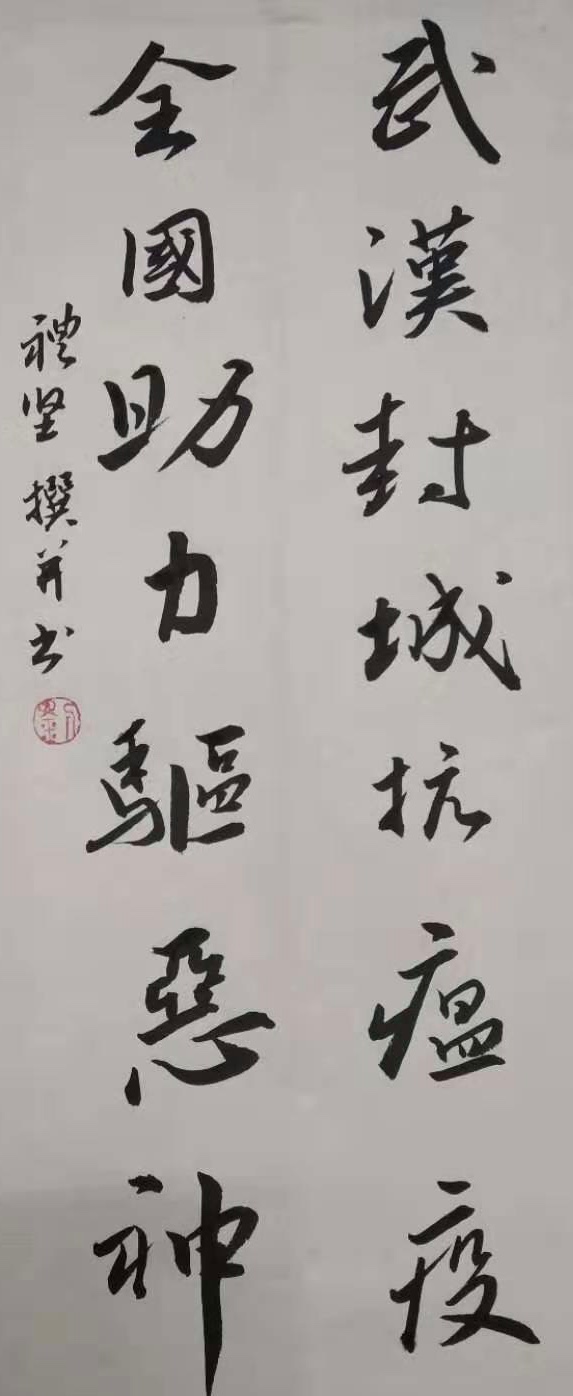 武漢封城抗瘟疫
全國助力驅惡神
禮坚撰并书